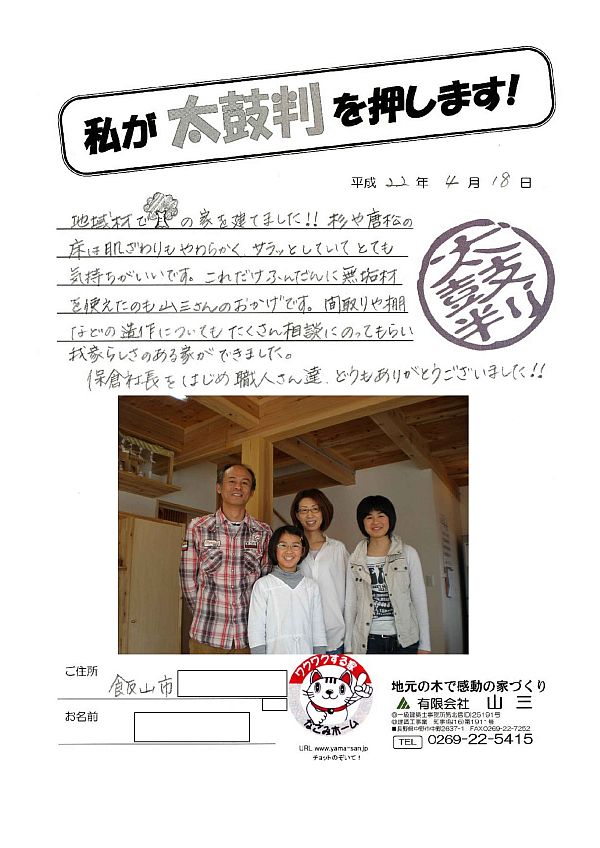 私が太鼓判を押します!
平成 22 年 4 月 18 日
地域材で の家を建てました!! 杉や唐松の
床は肌ざわりもやわらかく、サラッとしていてとても
気持ちがいいです。これだけふんだんに無垢材
を使えたのも山三さんのおかげです。間取りや棚
などの造作についてもたくさん相談にのってもらい
我家らしさのある家ができました。
保倉社長をはじめ職人さん達、どうもありがとうございました!!
太鼓判
ご住所 飯山市
お名前
ワクワクする家
なごみホーム
URL www.yama-san.jp
チョットのぞいて!
地元の木で感動の家づくり
有限会社 山三
◎一級建築士事務所馬北信(D)25191号
◎建築工事業 知事(特16)第1911号
■長野県中野市中野2837-1 FAX0269-22-7252
TEL 0269-22-5415